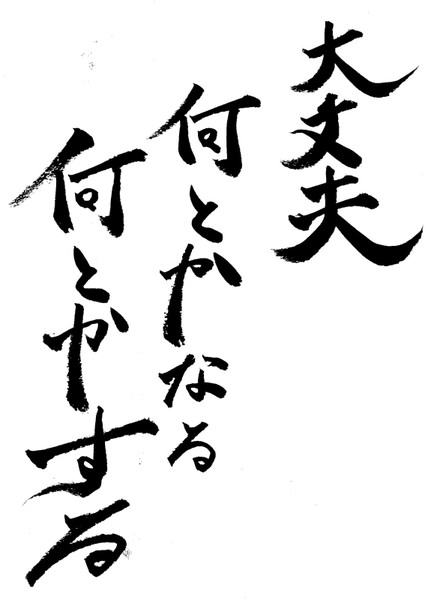 大丈夫
何とかなる
何とかする